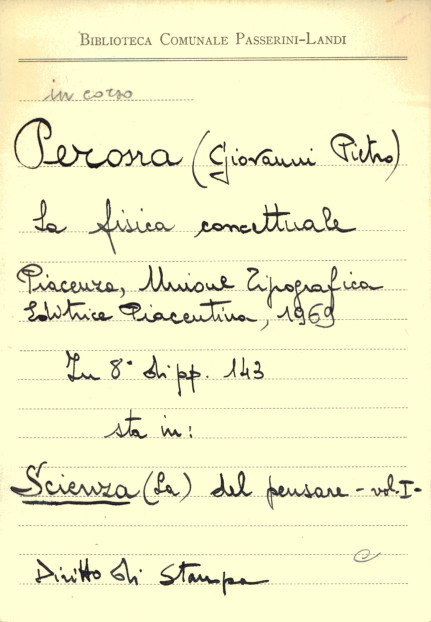 BIBLIOTECA COMUNALE PASSERINI-LANDI
in corso
Perosa (Giovanni Pietro)
La fisica concettuale
Piacenza, Unione Tipografica
Editrice Piacentina, 1969
In 8° di pp. 143
sta in:
Scienza (La) del pensare - vol. I -
e
Diritto di Stampa